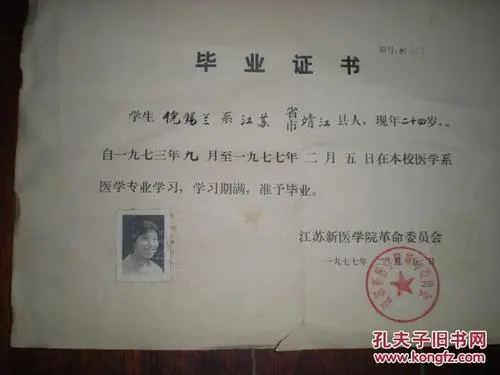 编号:
毕业证书
学生 倪锡兰 系 江苏 省市 靖江 县人,现年二十四岁,
自一九七三年九月至一九七七年二月五日在本校医学系
医学专业学习,学习期满,准予毕业。
江苏新医学院革命委员会
一九七七年 月 日
江苏新医学院革命委员会
孔夫子旧书网
www.kongfz.com